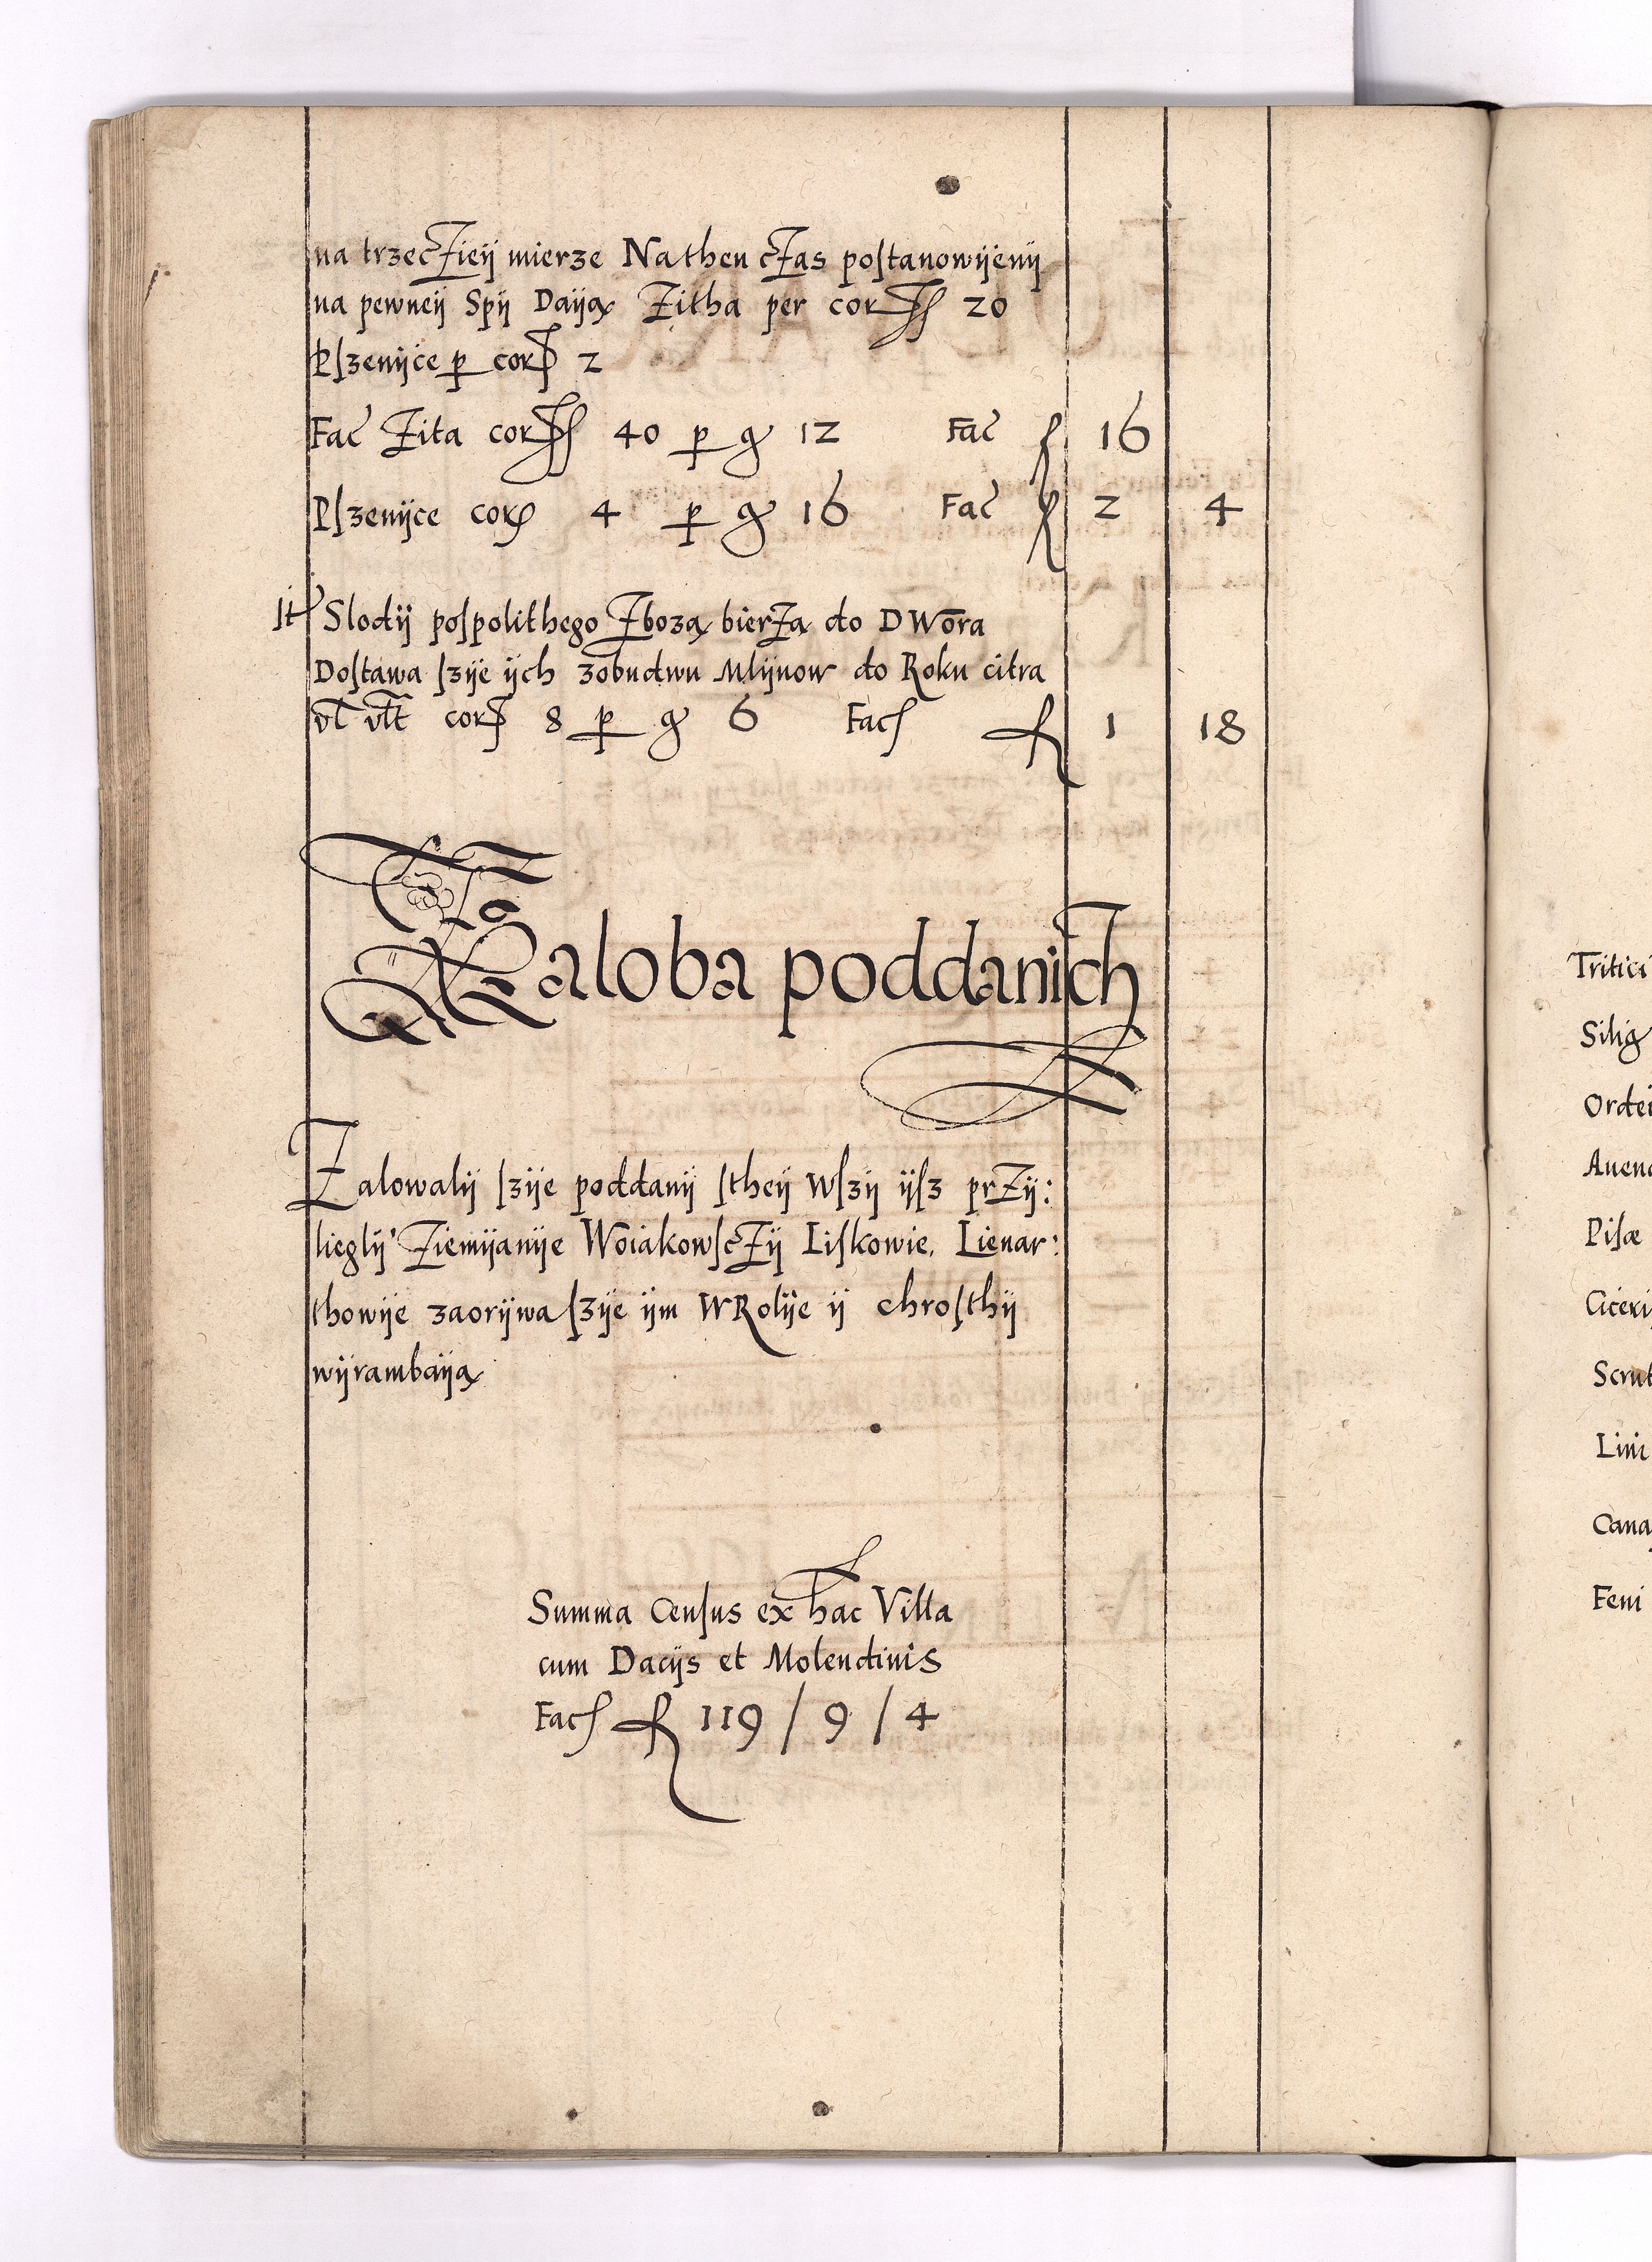 na trzecZieij mierze Nathen cZas poſtanowijenij
na pewneij Spij Daiją Zitha per cor 20
Pſzenijce p cor 2
Fac Zita cor 40 p g 12 Fac f 16
Pſzenijce cor 4 p g 16 Fac f 2 4
It Slodij poſpolithego Zbozą bierZa do DWora
Doſtawa ſzije ijch zobudwu Mlijnow do Roku citra
vl vlt cor 8 p g 6 Fac f 1 18
Zaloba poddanich
Zalowalij ſzije poddanij ſtheij Wſzij ijſz prZij:
lieglij Ziemijanije WoiakowſcZij Liſkowie, Lienar:
thowije zaorijwa ſzije ijm WRolije ij chroſthij
wijrambaiją
Summa Cenſus ex hac Villa
cum Dacijs et Molendinis
Fac f 119 / 9 / 4
Tritici
Silig
Ordei
Auena
Piſæ
Ciceri
Scrut
Lini
Cana
Feni